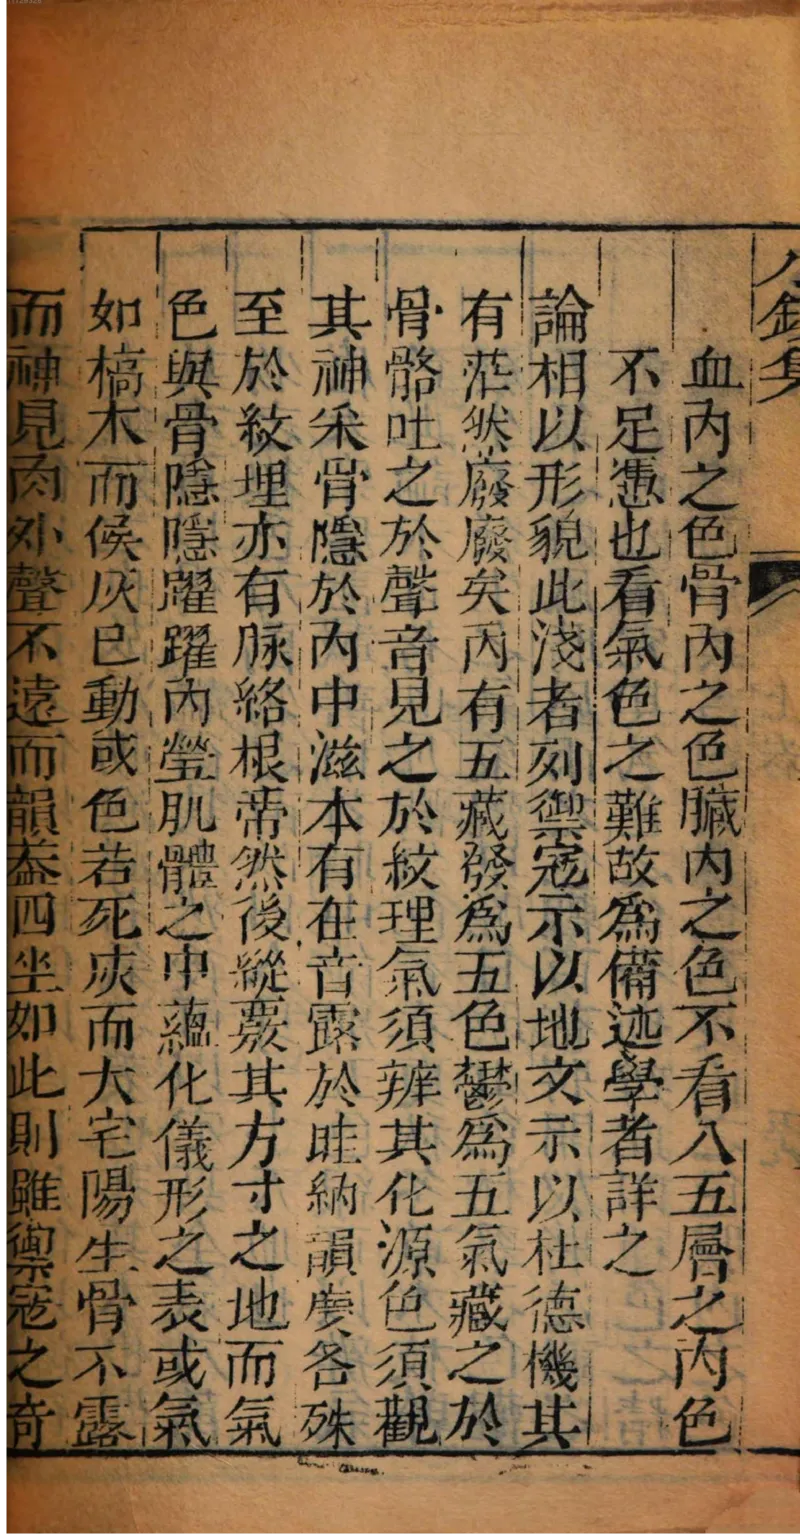 血內之色骨內之色臟內之色不看入五層之內色
不足憑也看氣色之難故為備述學者詳之
論相以形貌此淺者列禦寇示以地文示以杜德機其
有茫然廢廢矣內有五藏發為五色鬱為五氣藏之於
骨骼吐之於聲音見之於紋理氣須辨其化源色須觀
其神采骨隱於內中滋本有在音露於眭納韻度各殊
至於紋埋亦有脉絡根蒂然後縱覈其方寸之地而氣
色與骨隱隱躍躍內瑩肌體之中蘊化儀形之表或氣
如槁木而候灰已動或色若死灰而大宅陽生骨不露
而神見肉外聲不遠而韻盎四坐如此則雖禦寇之奇